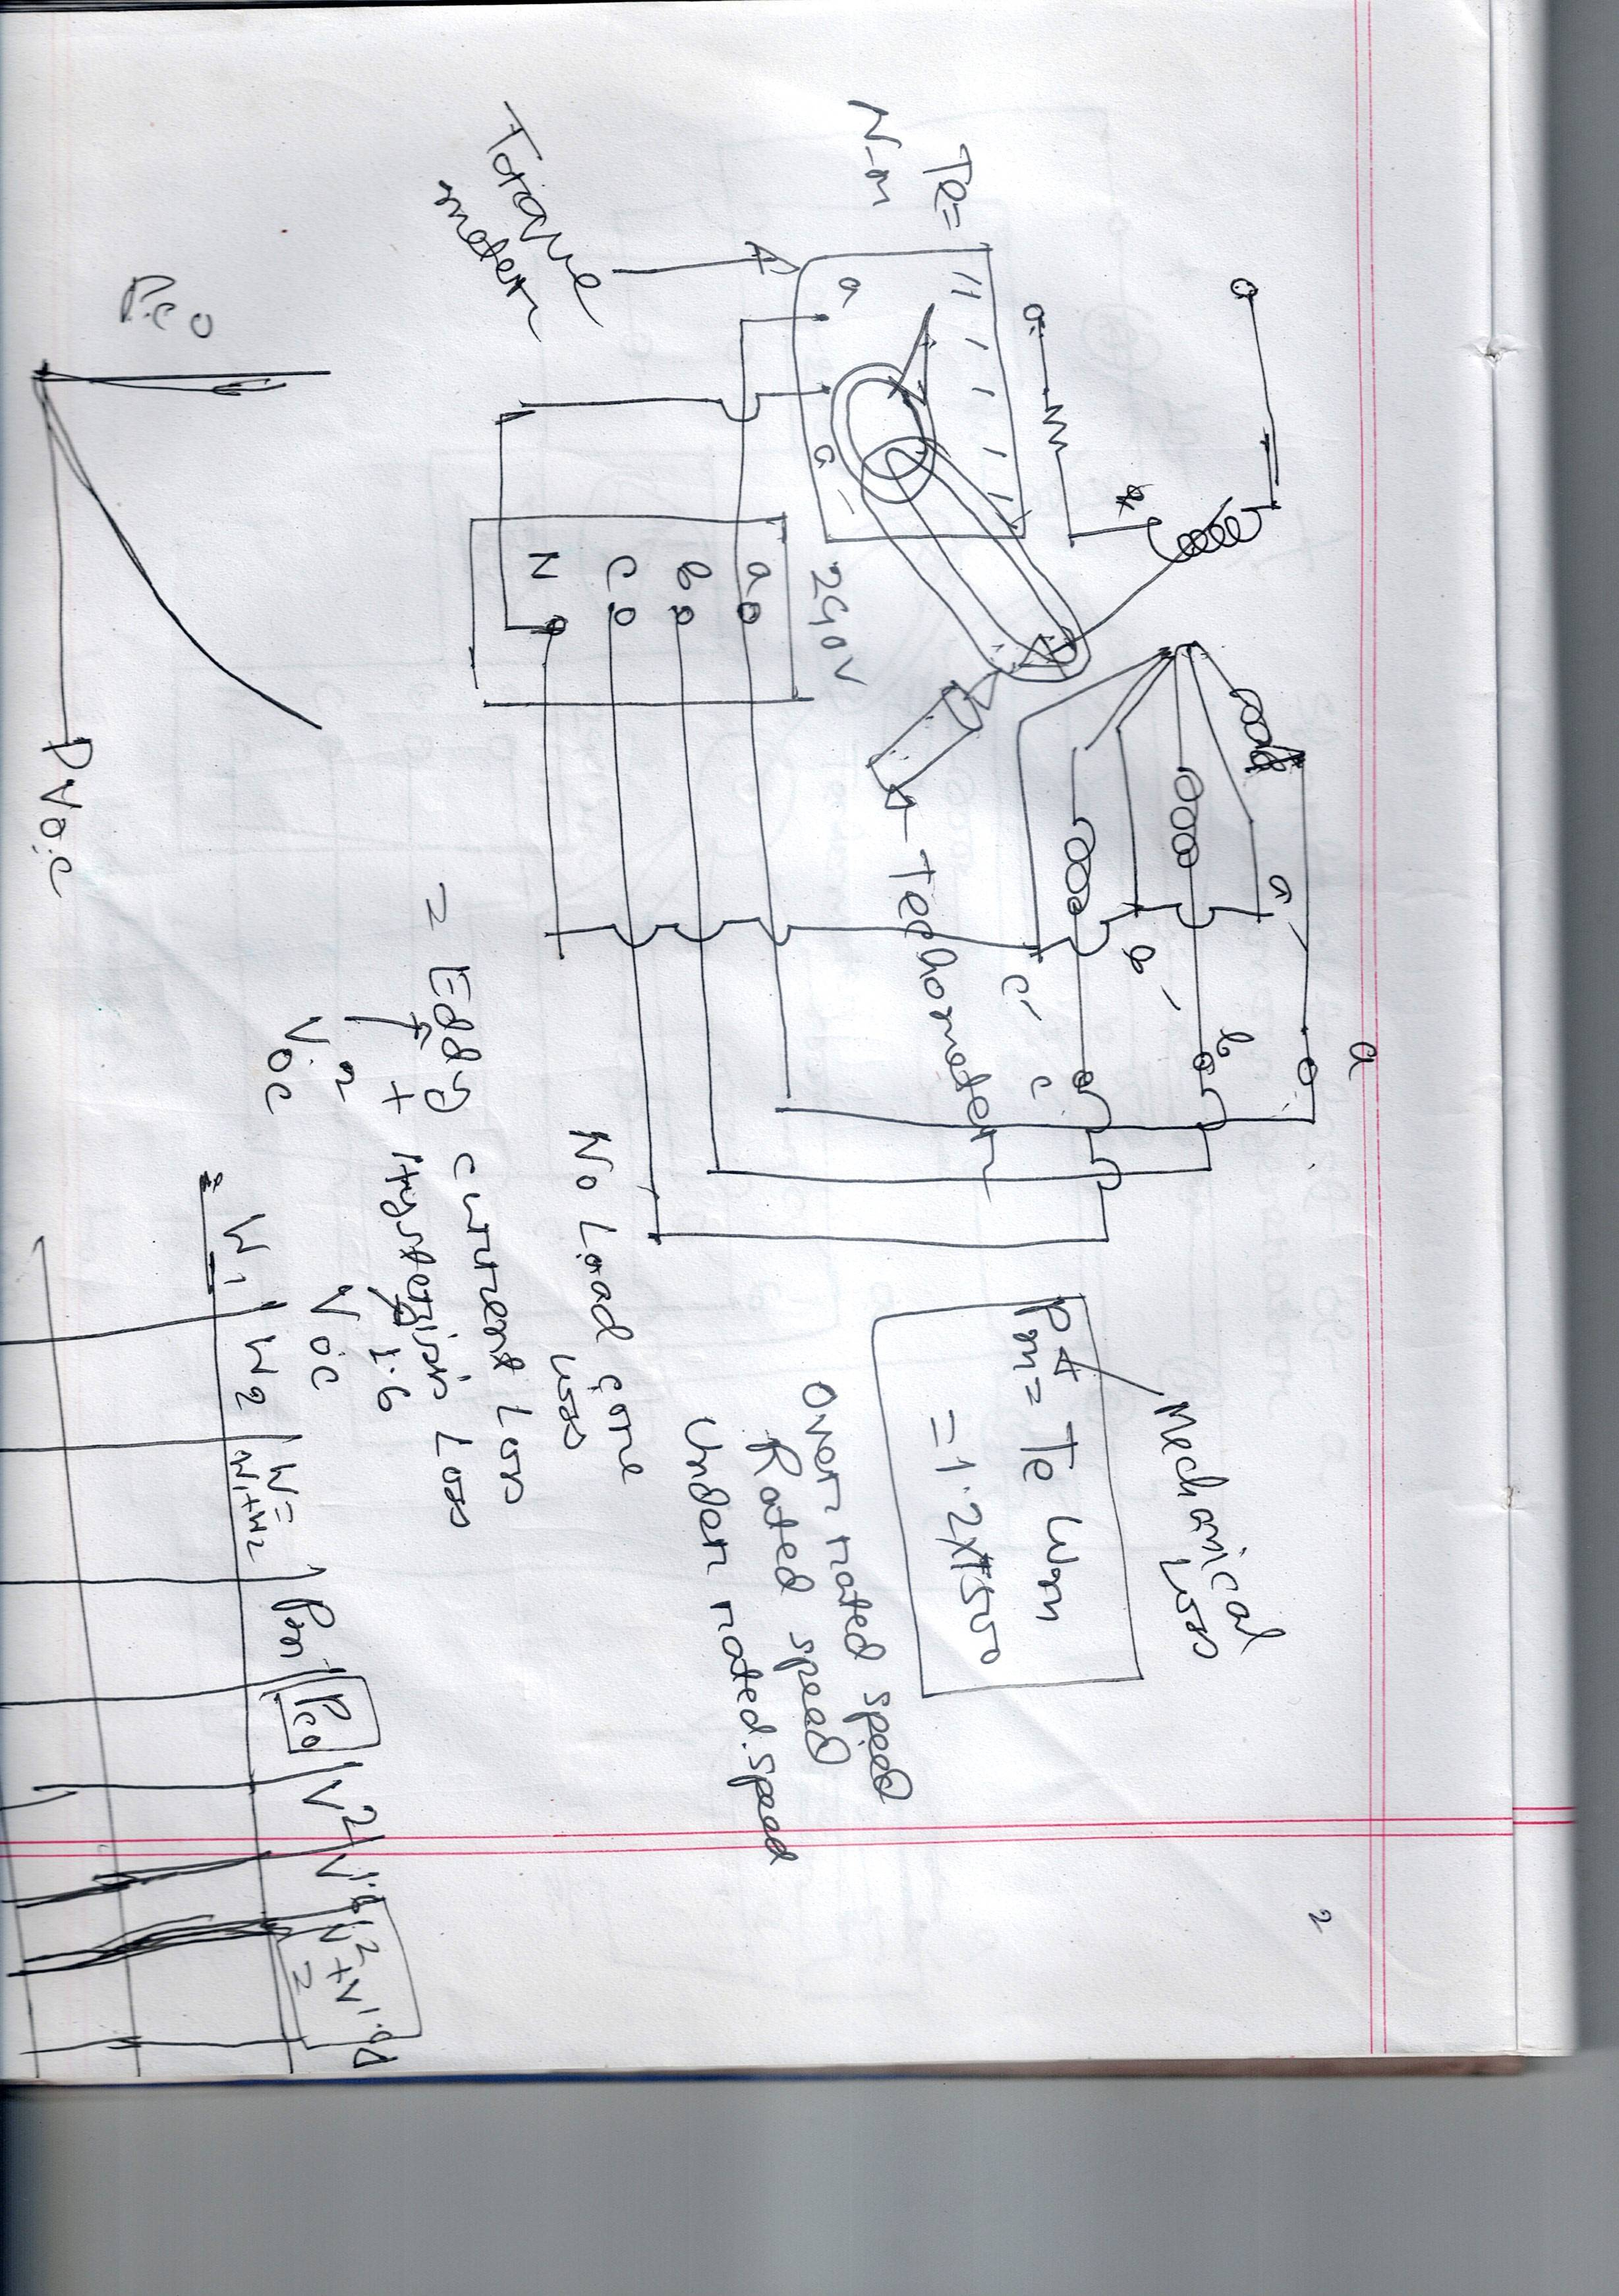 2
a
a'
b
b'
c
c'
Te=
N-m
Torque
meter
240V
a
b
c
N
Techometer
Mechanical
Loss
Pm = Te Wm
= 1.2x1500
Over rated speed
Rated speed
Under rated speed
No Load core
Loss
= Eddy current Loss
+ Hysterisis Loss
Voc 2
Voc 1.6
Pco
Voc
W1 | W2 | W= W1+W2 | Pm | Pco | V2 | V1.6 | V2+V1.6
2